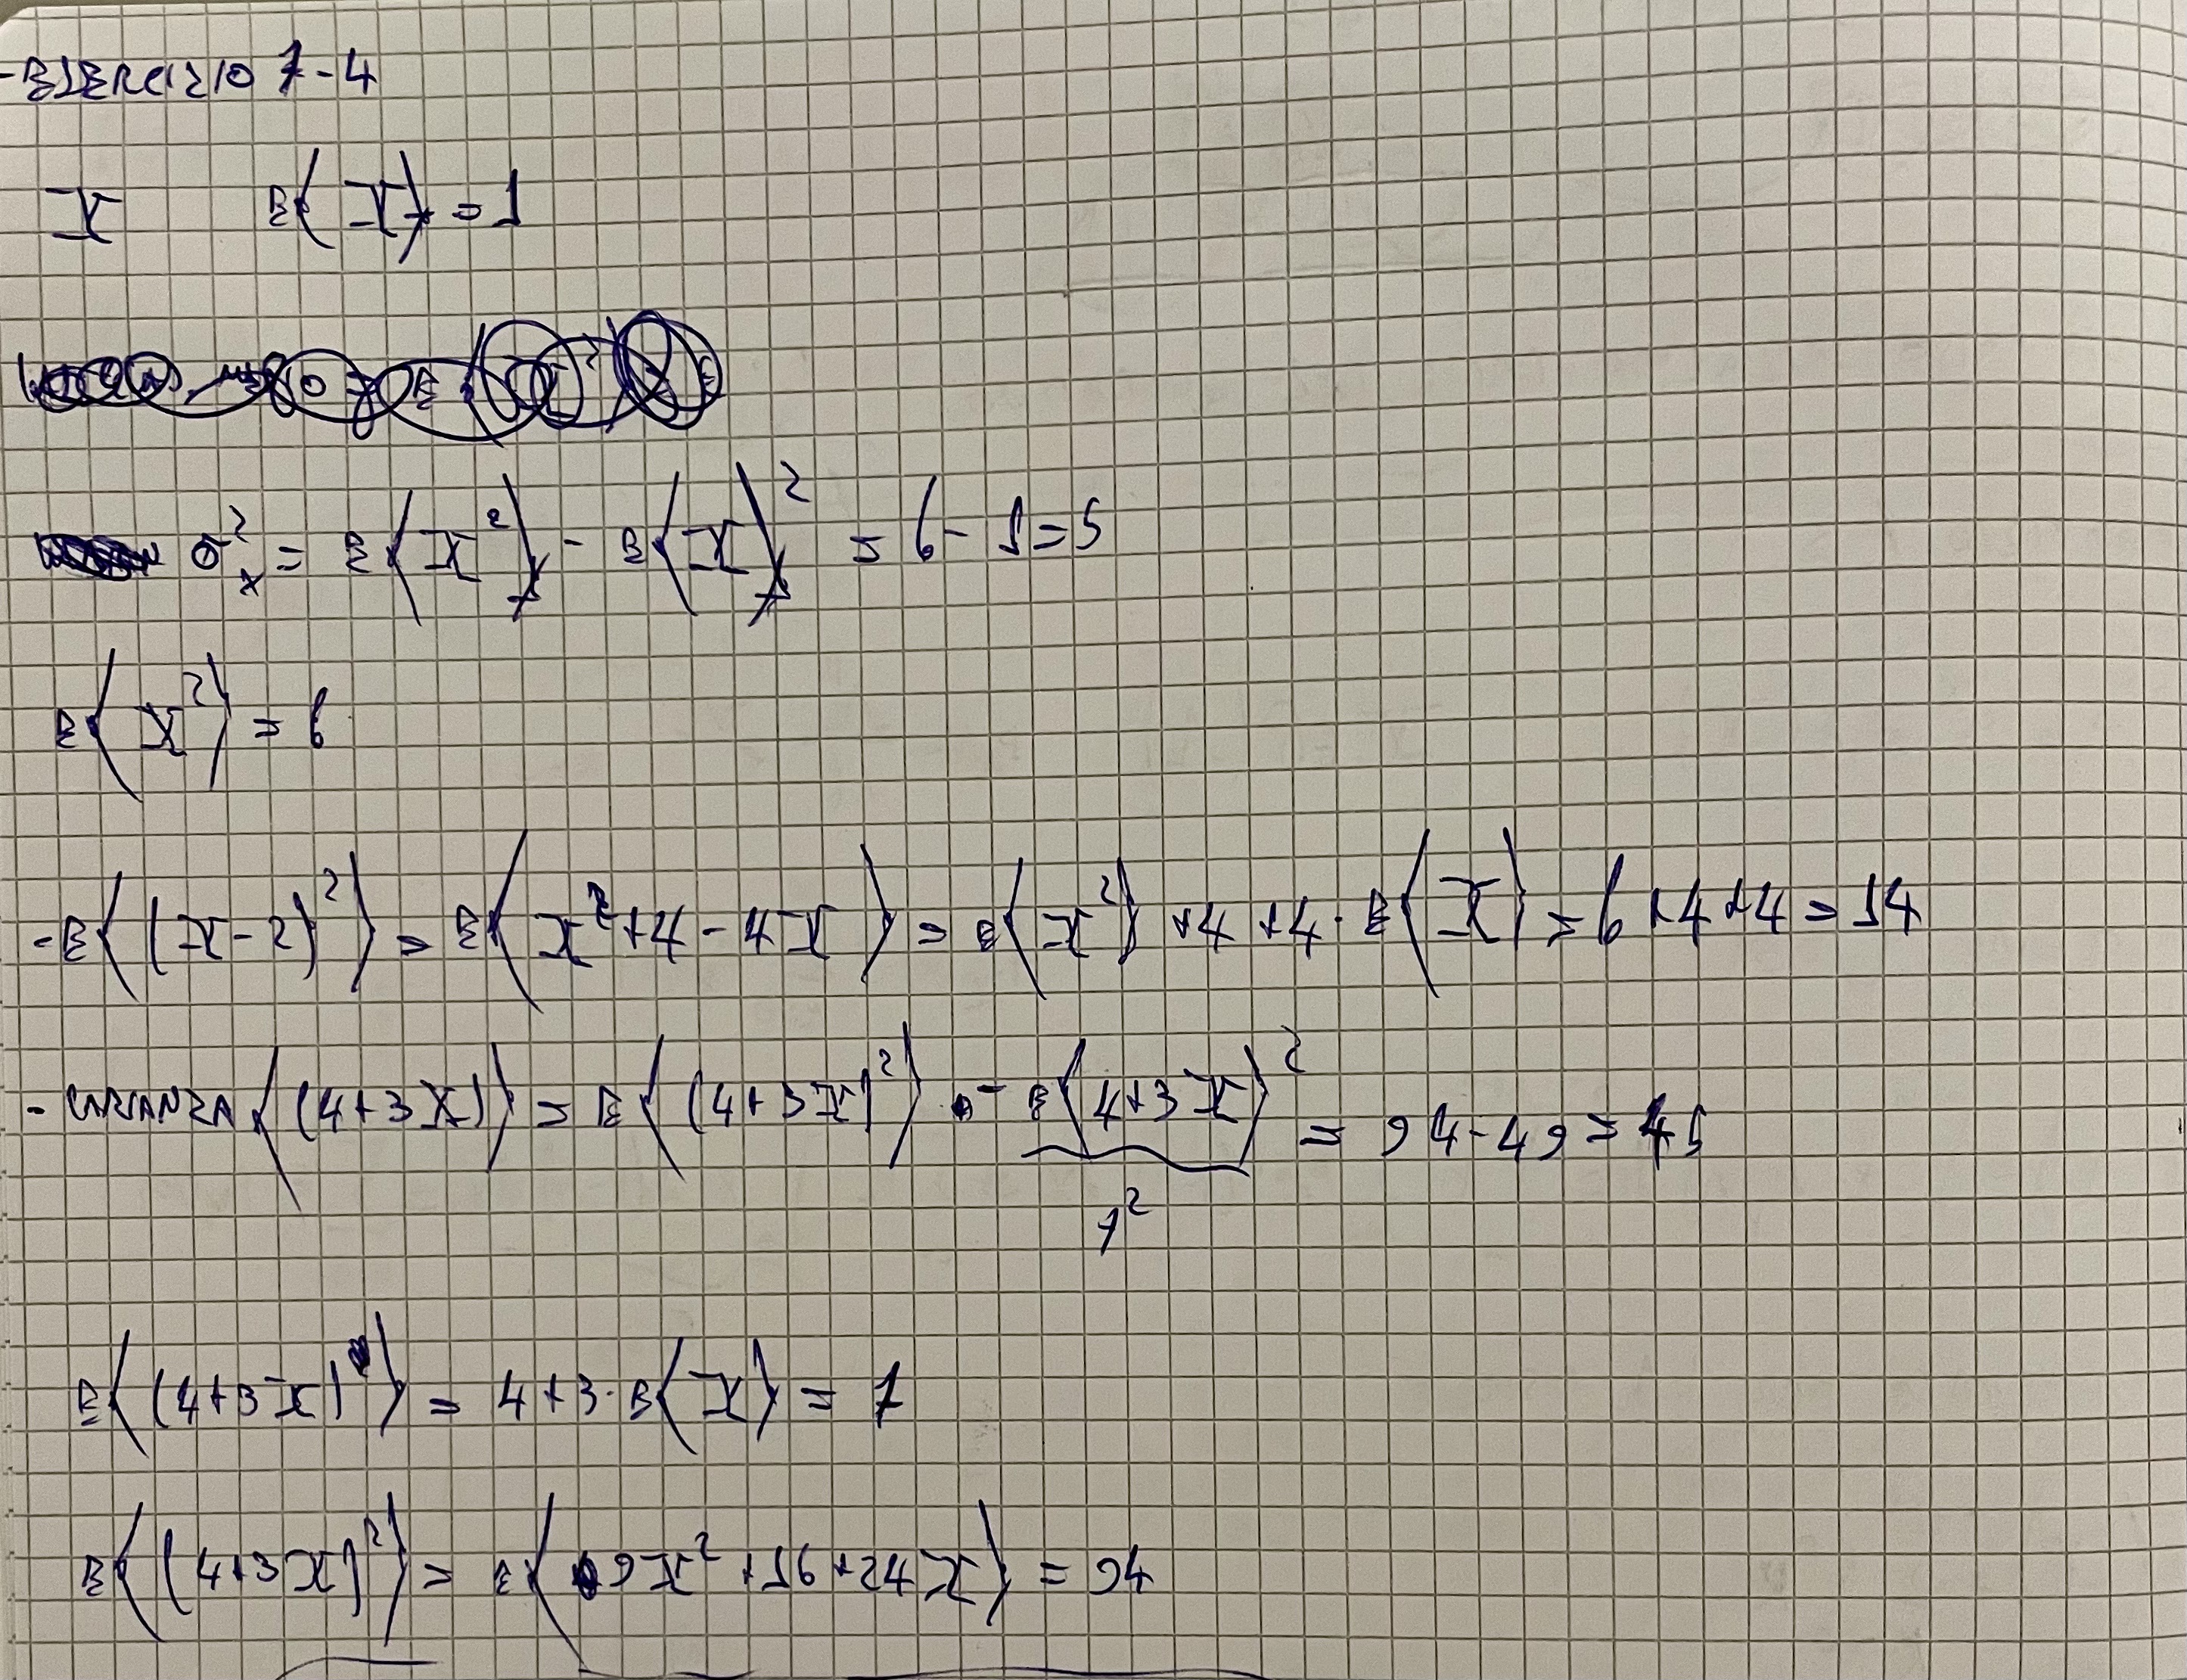 -ESERCIZIO 7-4
X E(X) = 1
σ²ₓ = E(X²) - E(X)² = 6 - 1 = 5
E(X²) = 6
- E((X-2)²) = E(X²+4-4X) = E(X²) +4 +4·E(X) = 6+4+4 = 14
- VARIANZA((4+3X)) = E((4+3X)²) - E(4+3X)² = 94-49 = 45
7²
E((4+3X)) = 4+3·E(X) = 7
E((4+3X)²) = E(9X²+16+24X) = 94